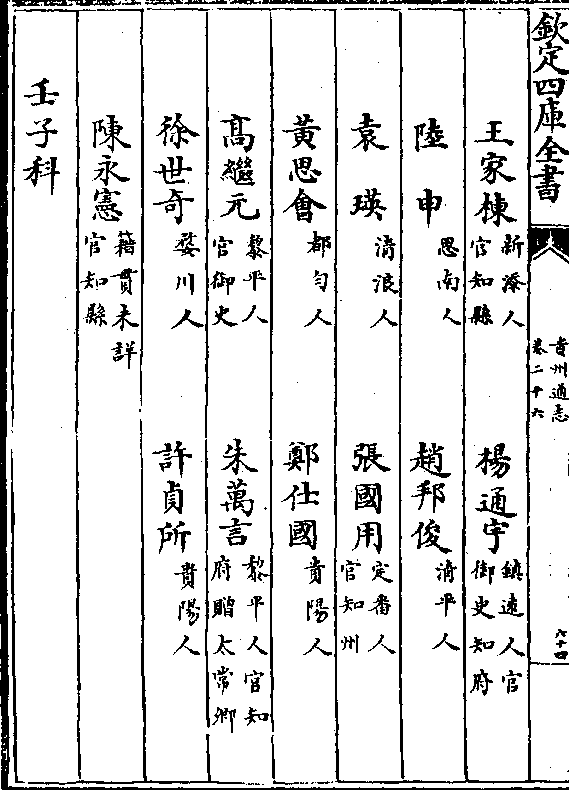 欽定四庫全書
貴州通志
卷二十六
六十四
王家棟 新添人官知縣
楊通宇 鎮遠人官御史知府
陸申 思南人
趙邦俊 清平人
袁瑛 清浪人
張國用 定番人官知州
黃思會 都勻人
鄭仕國 貴陽人
高繼元 黎平人官御史
朱萬言 黎平人官知府贈太常卿
徐世奇 婺川人
許貞所 貴陽人
陳永憲 籍貫未詳官知縣
壬子科